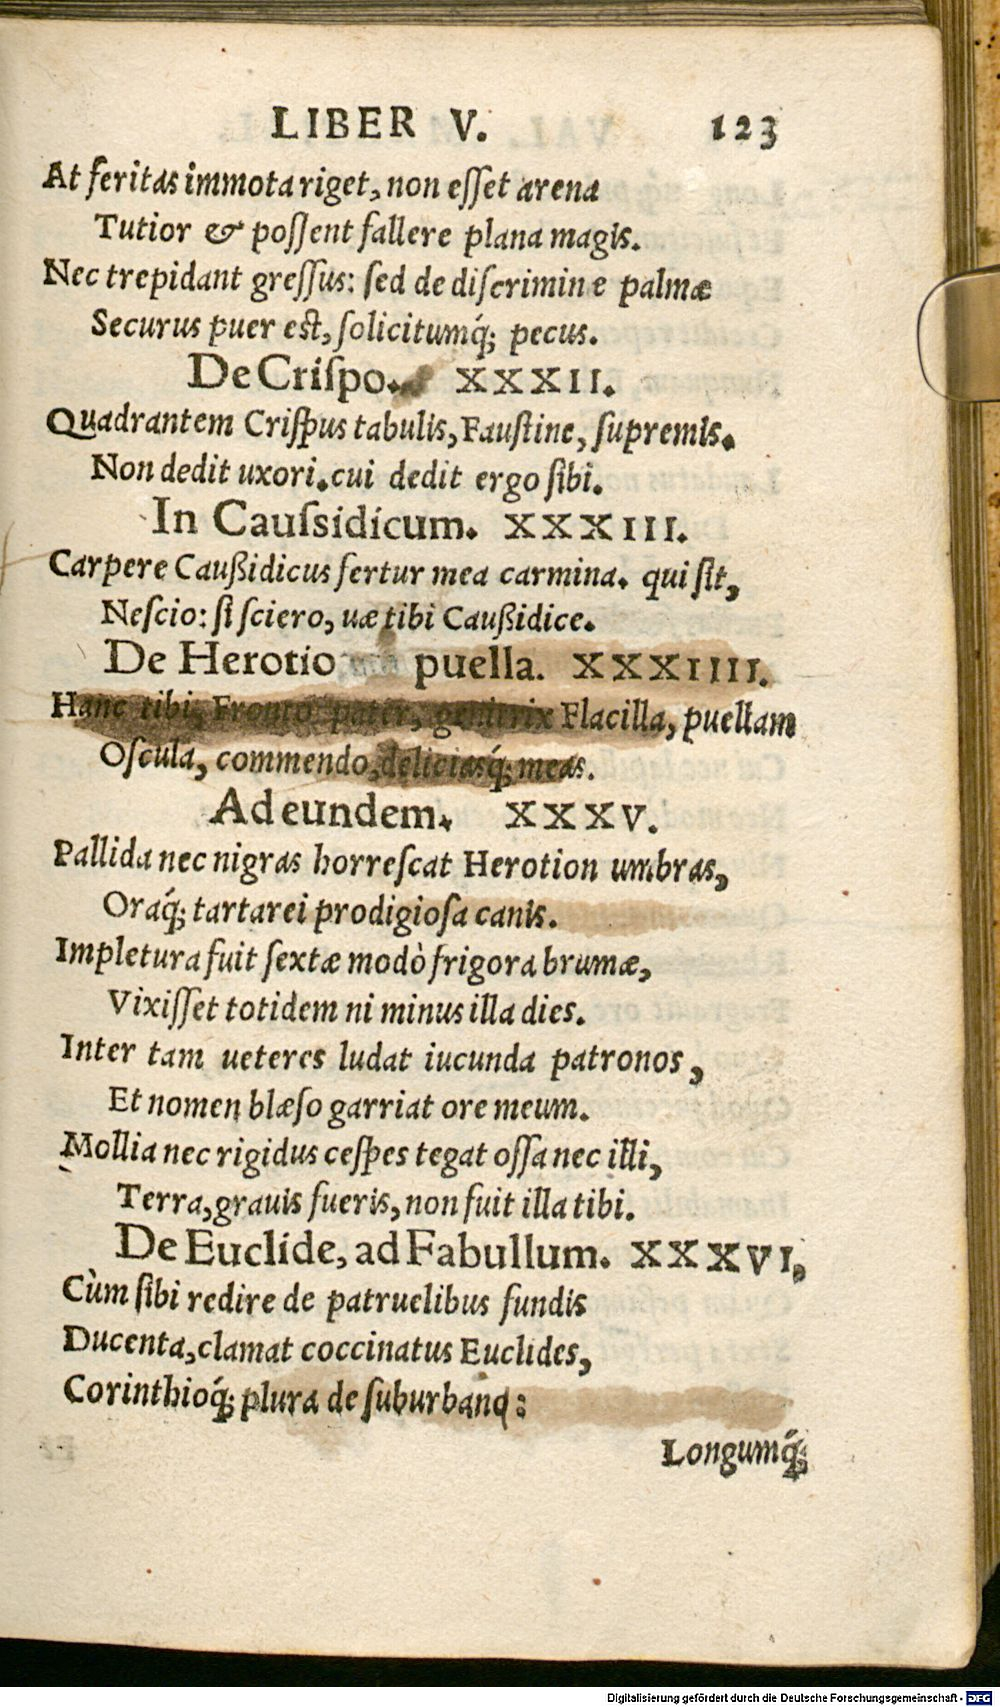 LIBER V. 123
At feritas immota riget, non eſſet arena
Tutior & poſſent fallere plana magis.
Nec trepidant greſſus: ſed de diſcrimine palmæ
Securus puer eſt, ſolicitumq́; pecus.
De Criſpo. XXXII.
Quadrantem Criſpus tabulis, Fauſtine, ſupremis.
Non dedit uxori. cui dedit ergo ſibi.
In Cauſsidicum. XXXIII.
Carpere Cauſſidicus fertur mea carmina. qui ſit,
Neſcio: ſi ſciero, uæ tibi Cauſſidice.
De Herotio puella. XXXIIII.
Hanc tibi, Fronto pater, genitrix Flacilla, puellam
Oſcula, commendo, deliciasq́; meas.
Ad eundem. XXXV.
Pallida nec nigras horreſcat Herotion umbras,
Oraq́; tartarei prodigioſa canis.
Impletura fuit ſextæ modò frigora brumæ,
Vixiſſet totidem ni minus illa dies.
Inter tam ueteres ludat iucunda patronos,
Et nomen blæſo garriat ore meum.
Mollia nec rigidus ceſpes tegat oſſa nec illi,
Terra, grauis fueris, non fuit illa tibi.
De Euclide, ad Fabullum. XXXVI.
Cùm ſibi redire de patruelibus fundis
Ducenta, clamat coccinatus Euclides,
Corinthioq́; plura de ſuburbano:
Longumq́;
Digitalisierung gefördert durch die Deutsche Forschungsgemeinschaft - DFG